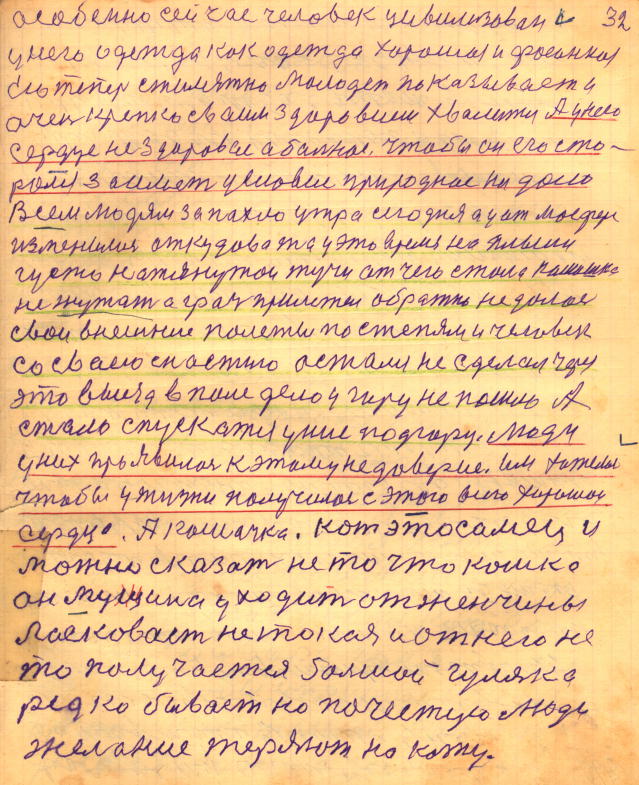 особенно сейчас человек цивилизован 32
у него одежда как одежда хорошая и фасонная
стилятно молодеш показывает и
очен крепко сваим здоровием хвалитя А унего
сердце не здоровае а балное. Чтобы он его сто-
ранй займет условие природнае на дала
Всем людям запахло утра сегодня а у атмосфери
изменилия откудова та у это время на плыли
густо натянутои тучи от чего стала
не жутат а грач прилител обратно не далае
свои внешние полеты по степям и человек
со сваею снастию остали не сделал через
это выезд в поле дело у гору не пошло А
стало спускатя уние подгору. Люди
у них прьявилая к этаму недоверие. им хателая
чтобы у жизни получилае с этого всего хорошои
сердце. А кошачка. кот это самец и
можно сказат не то что кошка
он мущина уходит от женчины
ласковает не токая и от него не
то получается балшой гуляка
редко бывает но почестую люди
желание теряют на кожу.